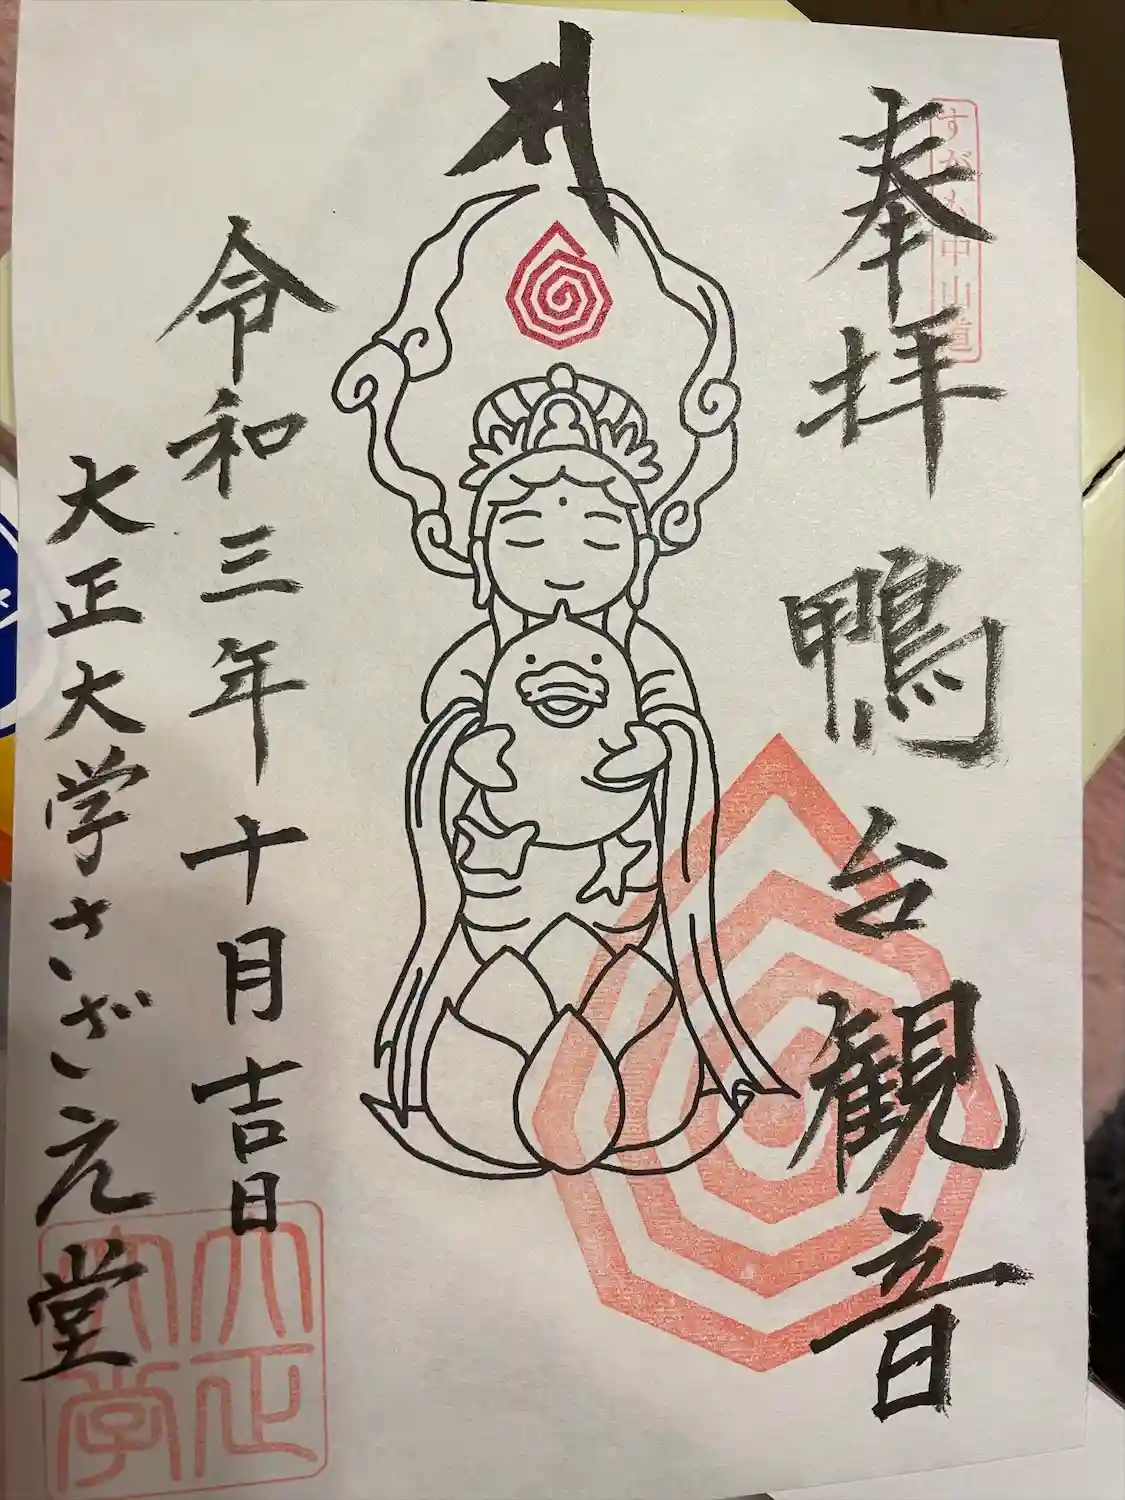 奉拝
すがも中山道
鴨台観音
令和三年十月吉日
大正大学さざえ堂
大正大学